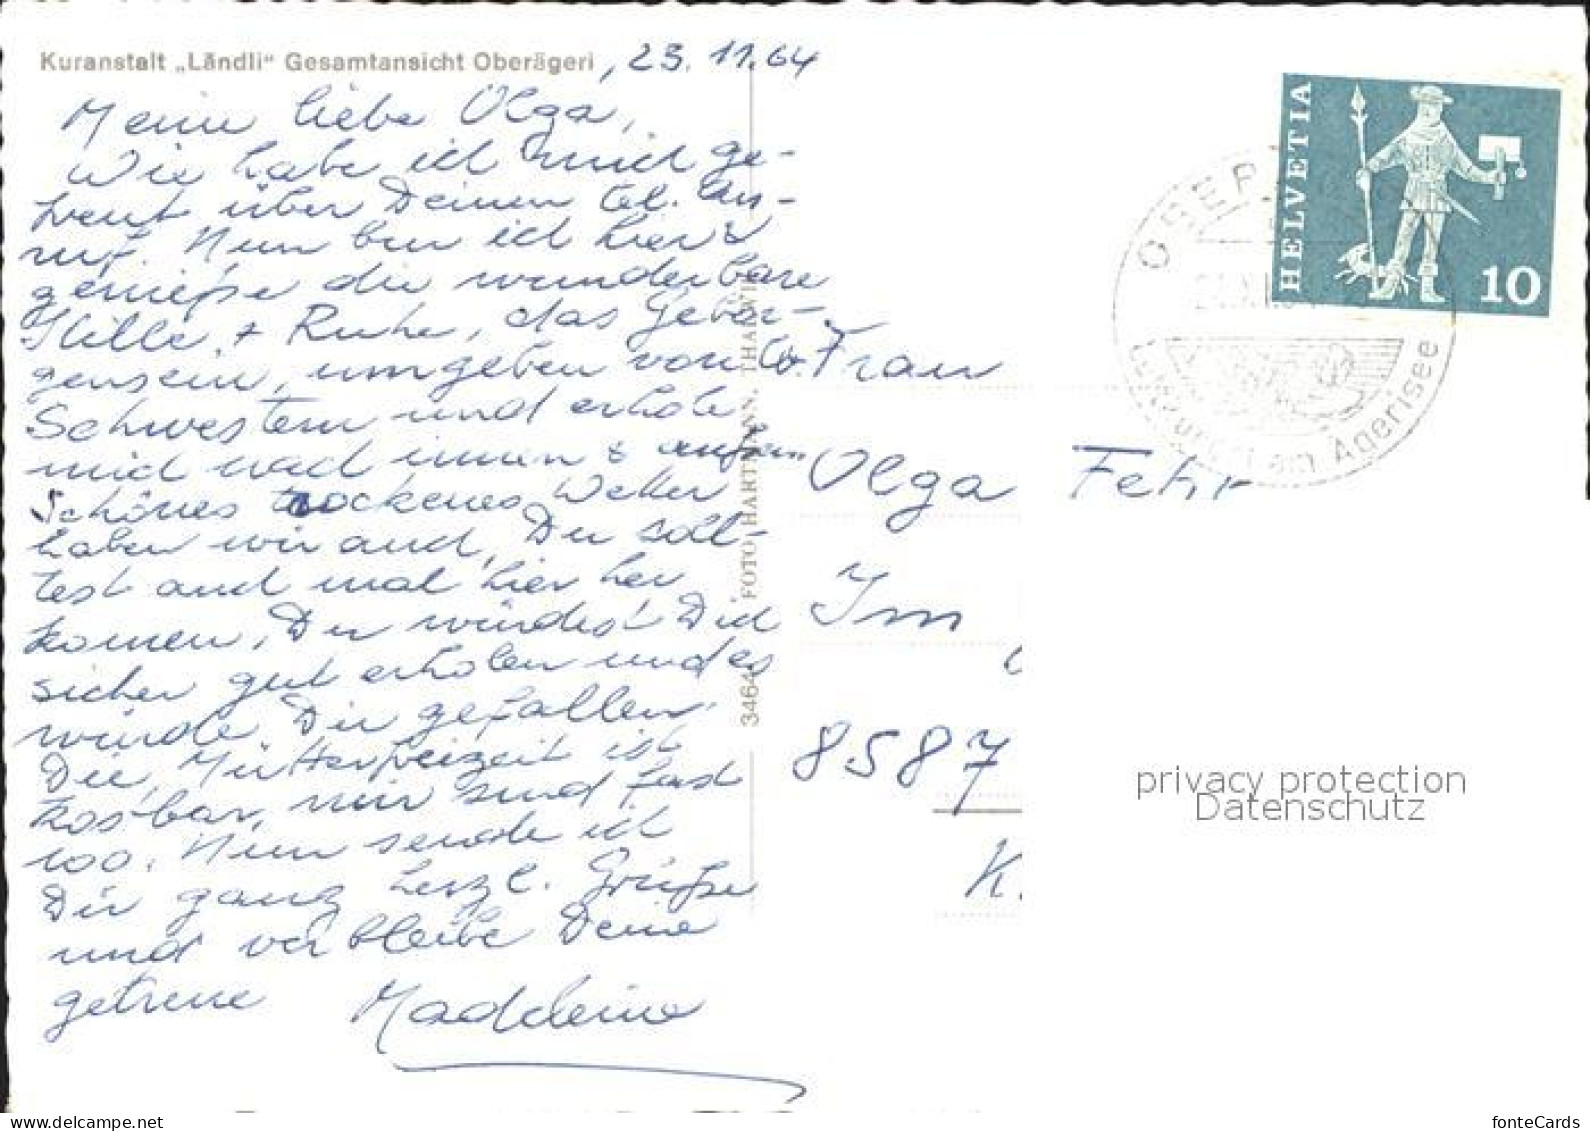 Kuranstalt „Ländli“ Gesamtansicht Oberägeri, 23. 11. 64
Meine liebe Olga,
Wie habe ich mich ge-
freut über Deinen tel. An-
ruf. Nun bin ich hier &
genieße die wunderbare
Stille + Ruhe, das Gebor-
gensein, umgeben von lb.
Schwestern und erhole
mich nach innen & außen
Schönes trockenes Wetter
haben wir auch, Du soll-
test auch mal hier her
komen, Du würdest Dich
sicher gut erholen und es
würde Dir gefallen.
Die Mütterfreizeit ist
kostbar, wir sind fast
100. Nun sende ich
Dir ganz herzl. Grüße
und verbleibe Deine
getreue Madeleine
3464 FOTO HARTMANN, THALWIL
Frau
Olga Fehr
Im
8587
K.
HELVETIA
10
OBER
Luftkurort am Ägerisee
privacy protection
Datenschutz
www.delcampe.net
fonteCards